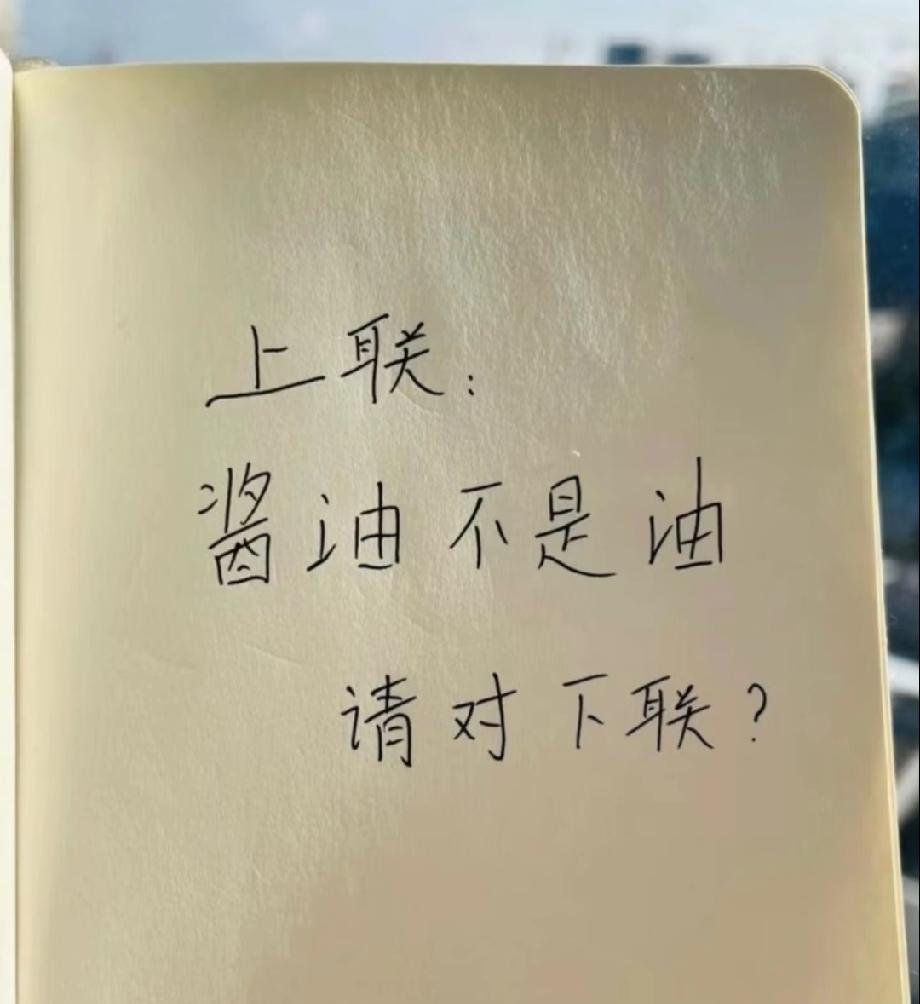 上联:
酱油不是油
请对下联?